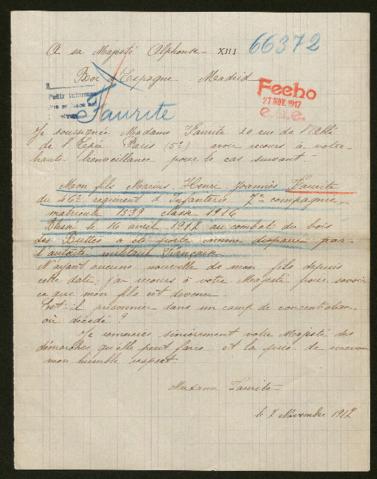 A sa Majesté Alphonse - XIII
66372
Roi d'Espagne Madrid
Fecho
27 NOV. 1917
Faurite
Je soussignée Madame Faurite 20 rue de l'Abbé
de l'Epée Paris (5e) avoir recours à votre
haute bienveillance pour le cas suivant -
Mon fils Marius Henri Joannies Faurite
du 46e regiment d'Infanterie 7me compagnie,
matricule 1539 classe 1916
Blessé le 16 avril 1917 au combat du bois
des Buttes a été porté comme disparu par
l'autorité militaire française
N'ayant aucune nouvelle de mon fils depuis
cette date, j'ai recours à votre Majesté pour savoir
ce que mon fils est devenu.
Est-il prisonnier dans un camp de concentration.
où décédé?
Je remercie sincèrement votre Majesté des
démarches qu'elle peut faire et la prie de recevoir
mon humble respect
Madame Faurite
le 8 Novembre 1917